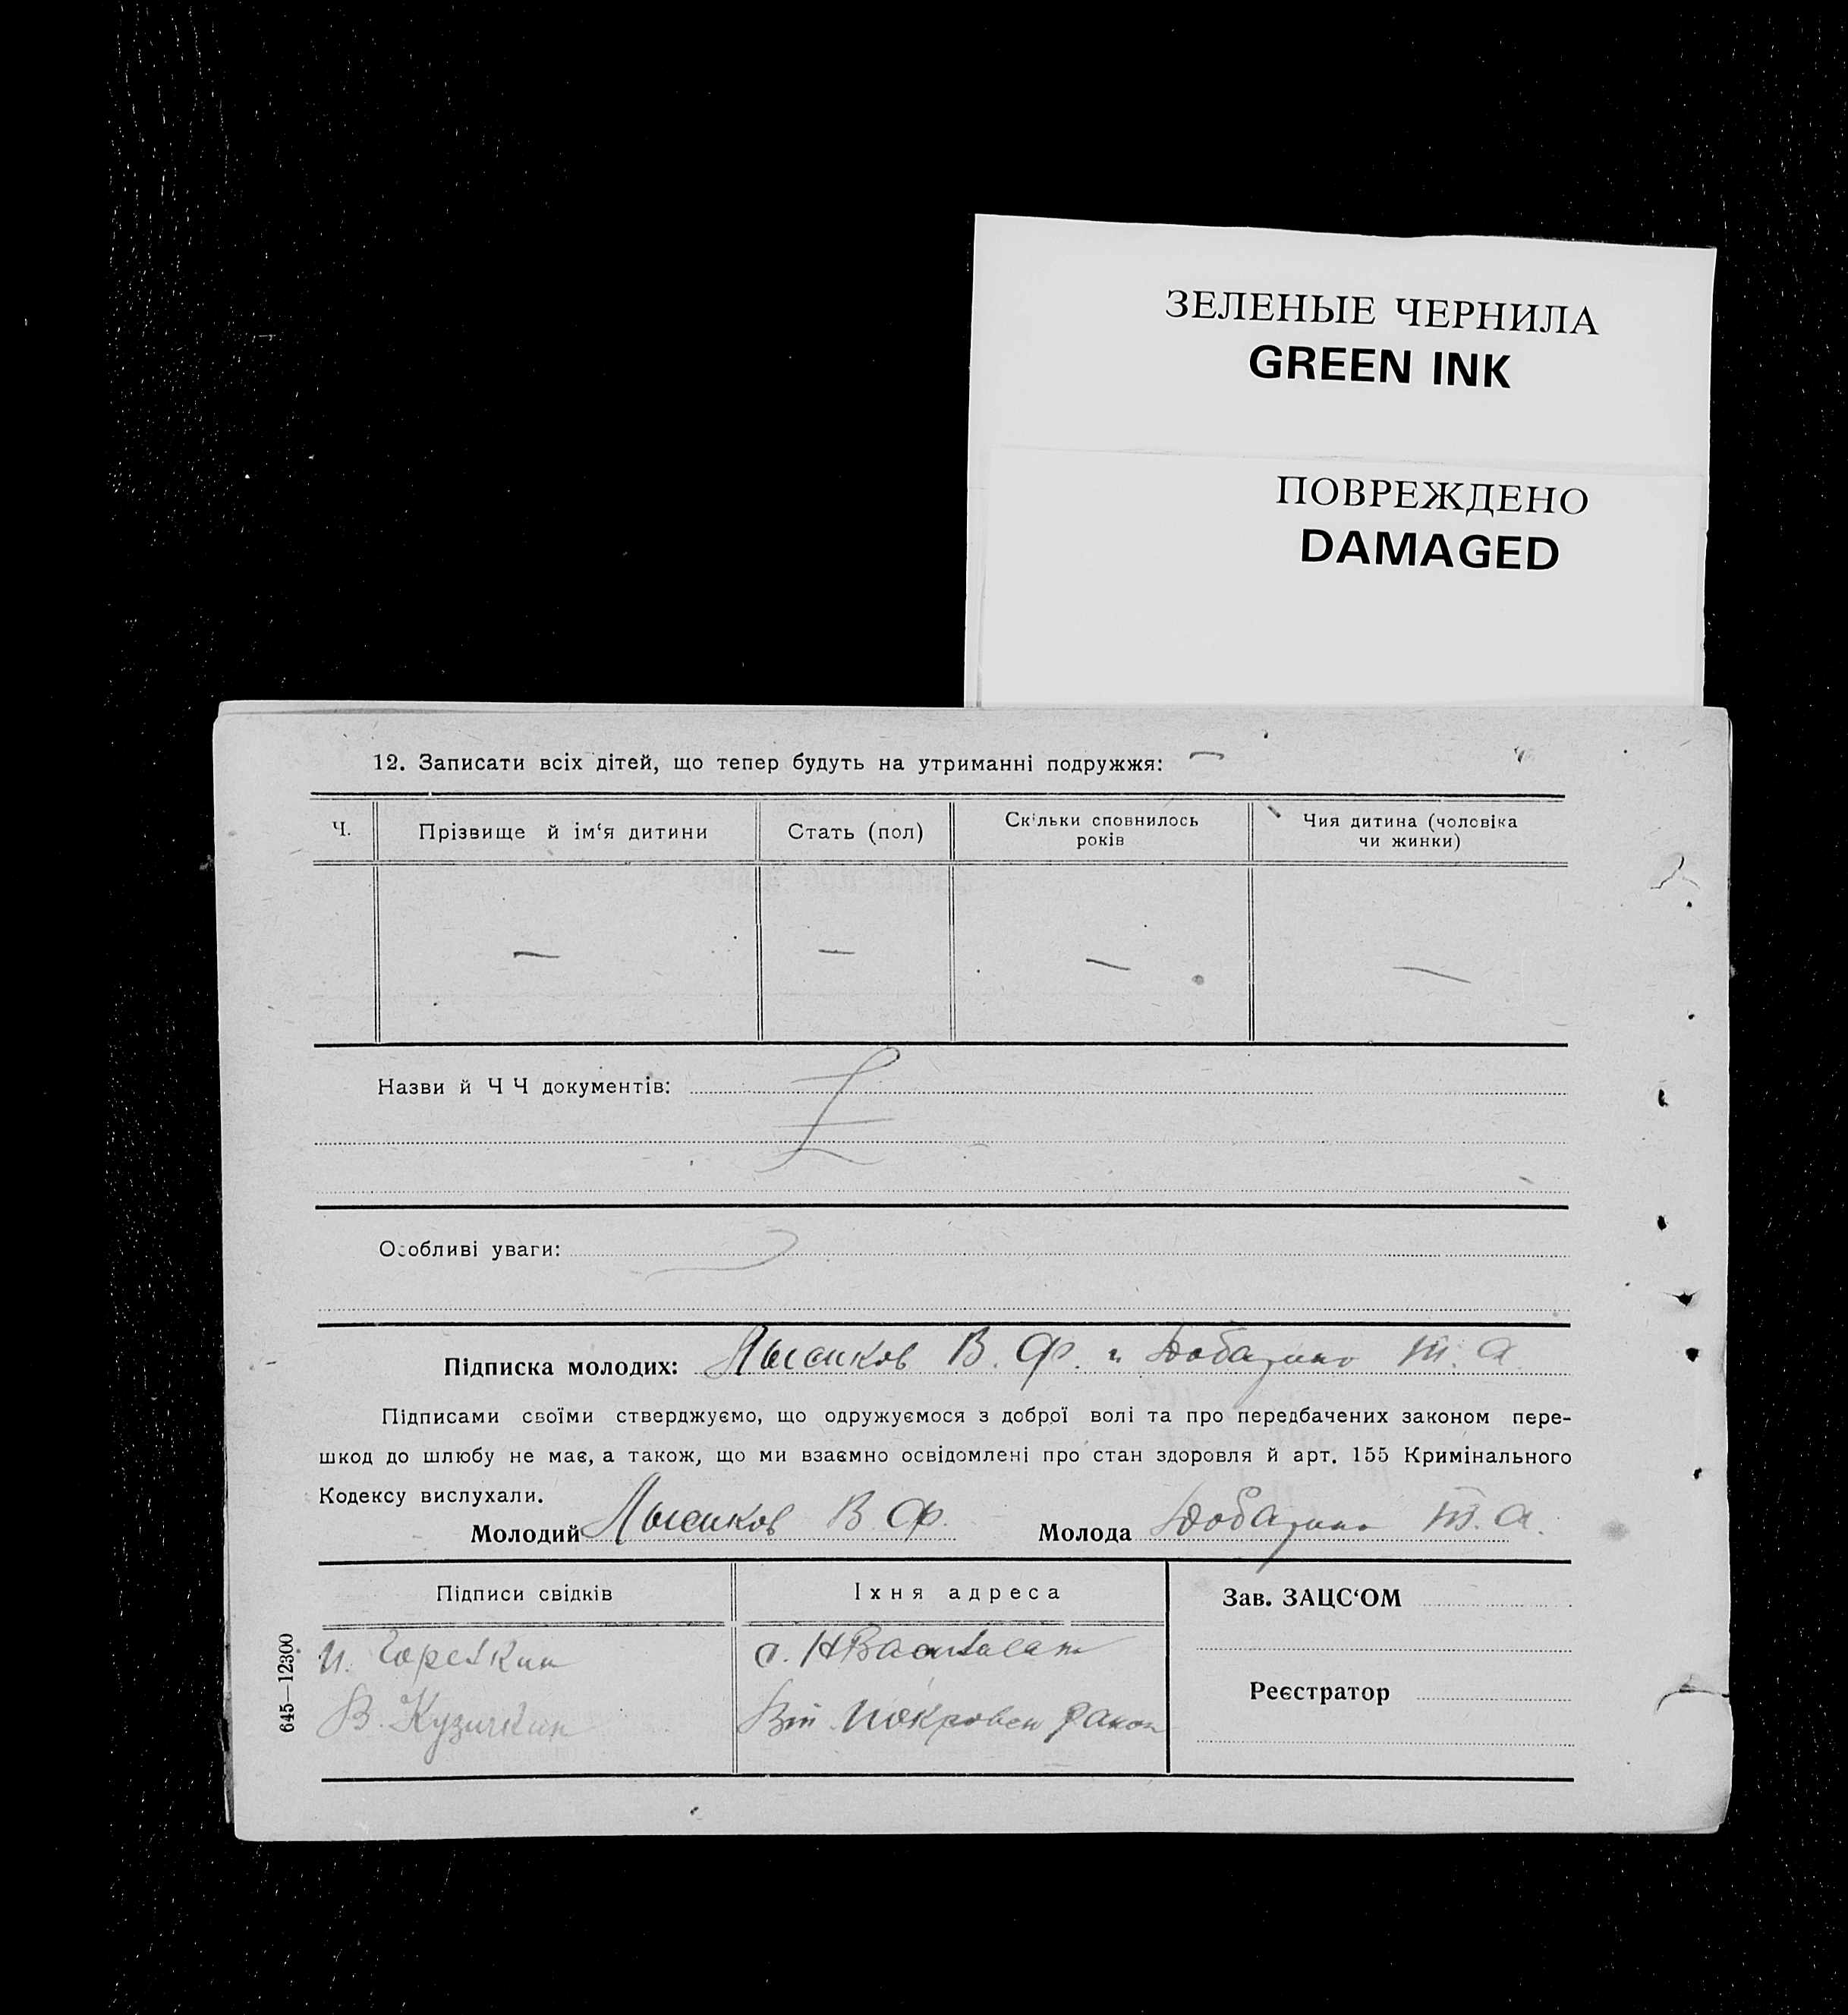 ЗЕЛЕНЫЕ ЧЕРНИЛА
GREEN INK
ПОВРЕЖДЕНО
DAMAGED
12. Записати всіх дітей, що тепер будуть на утриманні подружжя: —
Ч.
Прізвище й ім‘я дитини
Стать (пол)
Скільки сповнилось
років
Чия дитина (чоловіка
чи жинки)
— — — —
Назви й Ч Ч документів:
Особливі уваги:
Підписка молодих: Лысиков В. Ф. и Т. А.
Підписами своїми стверджуємо, що одружуємося з доброї волі та про передбачених законом пере-
шкод до шлюбу не має, а також, що ми взаємно освідомлені про стан здоровля й арт. 155 Кримінального
Кодексу вислухали.
Молодий Лысиков В Ф. Молода Т. А.
Підписи свідків
Їхня адреса
Зав. ЗАЦС‘ОМ
И.
В. Кузичкин
Покровск
Реєстратор
645—12300